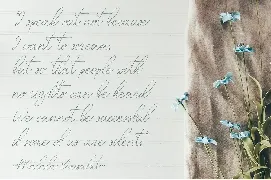 "I speak out not because
I want to scream,
but so that people with
no rights can be heard.
We cannot be successful
if some of us are silent."